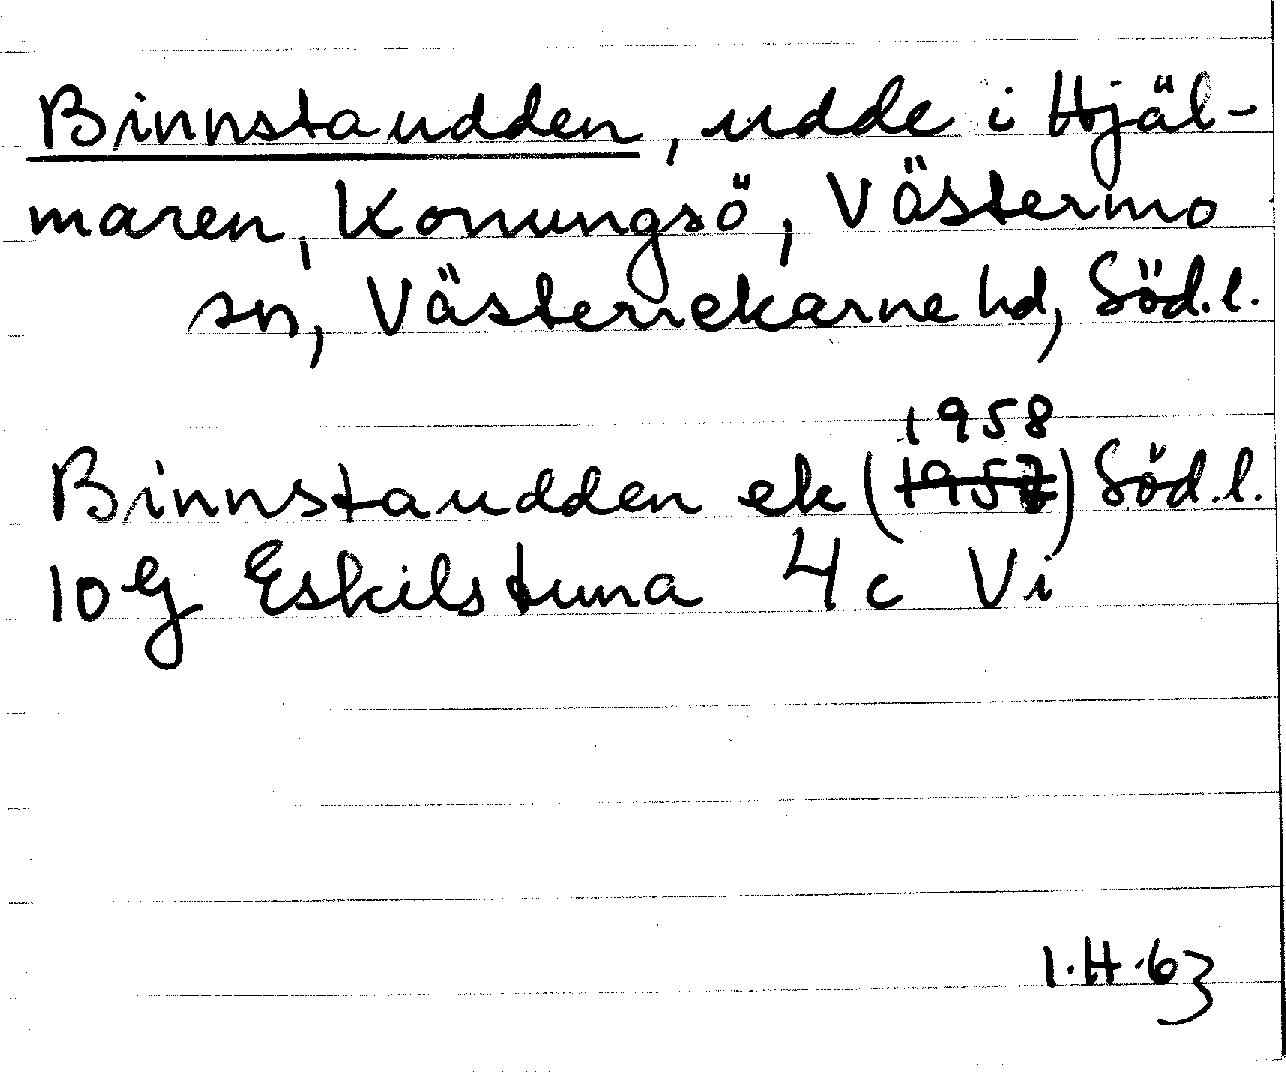 Binnstaudden, udde i Hjäl-
maren, Konungsö, Västermo
sn, Västerrekarne hd, Söd.l.
1958
Binnstaudden ek (1957) Söd.l.
10g Eskilstuna 4c Vi
I.H.63